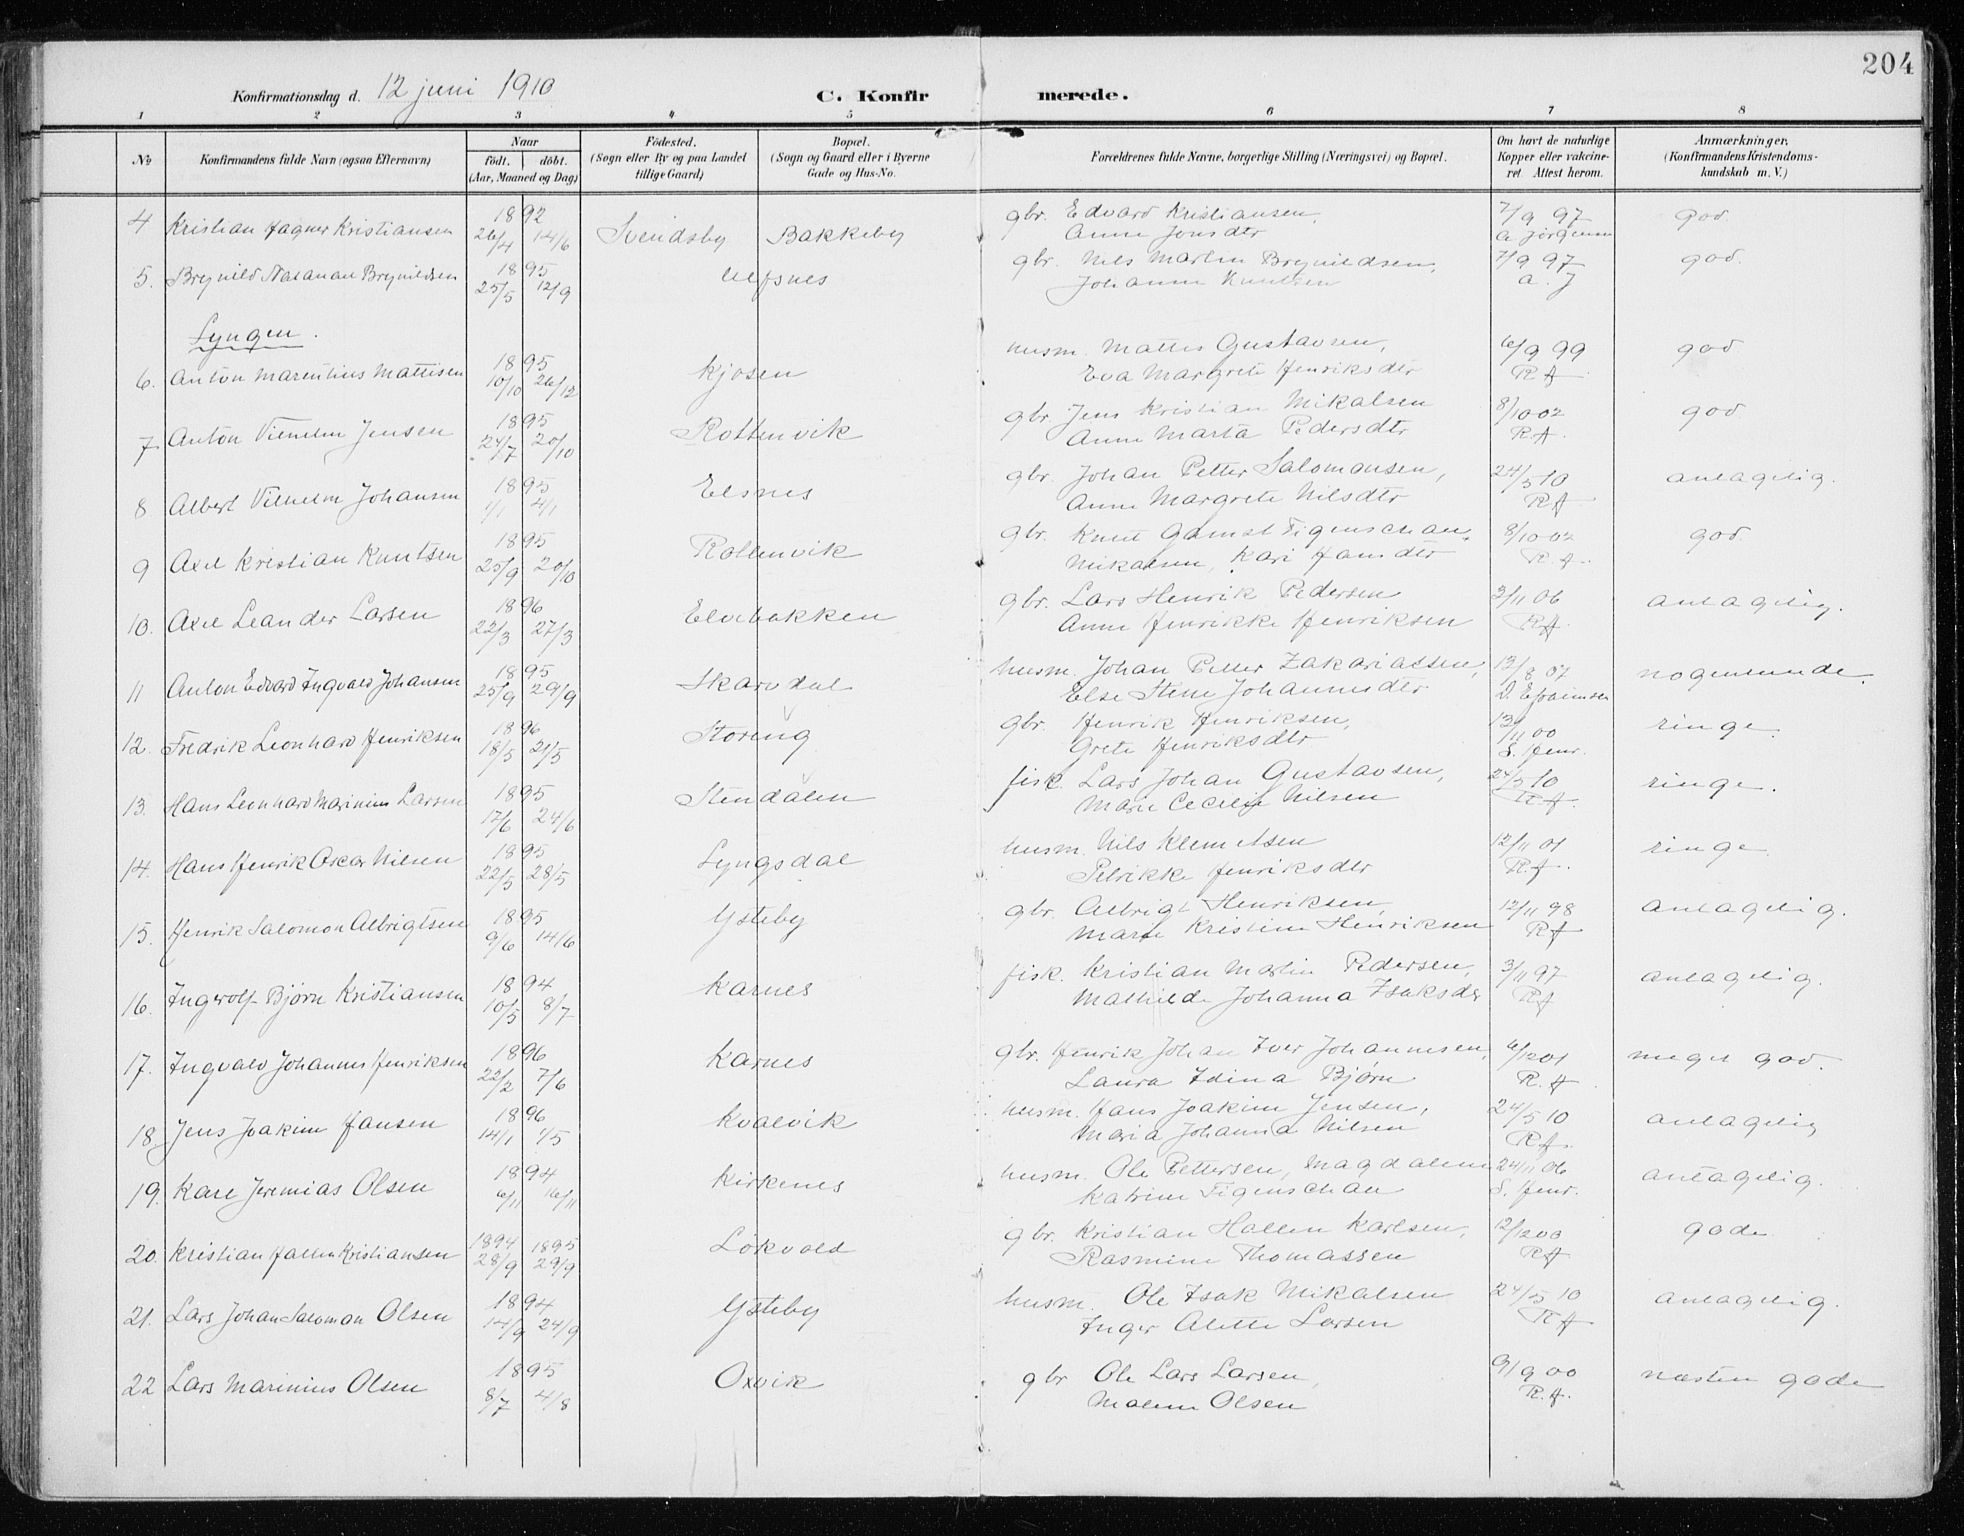 204
Konfirmationsdag d. 12 juni 1910 C. Konfirmerede.
1 2 3 4 5 6 7 8
No Konfirmandens fulde Navn (ogsaa Efternavn) Naar født. døbt. (Aar, Maaned og Dag) Fødested. (Sogn eller By og paa Landet tillige Gaard) Bopæl. (Sogn og Gaard eller i Byerne Gade og Hus-No. Forældrenes fulde Navne, borgerlige Stilling (Næringsvei) og Bopæl. Om havt de naturlige Kopper eller vakcineret. Attest herom. Anmærkninger. (Konfirmandens Kristendomskundskab m. V.)
4 Kristian Hagner Kristiansen 1892 26/4 14/6 Svendsby Bakkeby gbr. Edvard Kristiansen, Anne Jonsdtr 7/9 97 A Jørgensen god
5. Brynild Natanael Brynildsen 1895 25/5 12/9 Ulfsnes gbr. Nils Martin Brynildsen, Johanne Knutsen 7/9 97 A. J god.
Lyngen.
6. Anton Marentius Mattisen 1895 10/10 26/12 Kjosen husm. Mattis Gustavsen, Eva Margrete Henriksdtr 6/9 99 R A god
7 Anton Vilhelm Jensen 1895 24/7 20/10 Rottenvik gbr. Jens Kristian Mikalsen Anne Marta Pedersdtr 8/10 02 R.A. god
8 Albert Vilhelm Johansen 1895 1/1 4/1 Elsnes gbr. Johan Petter Salomonsen, Anne Margrete Nilsdtr 24/5 10 R A antagelig.
9 Axel Kristian Knutsen 1895 25/9 20/10 Rottenvik gbr. Knut Gamst Figenschau, Mikalsen, Kari Hansdtr 8/10 02 R A. god.
10. Axel Leander Larsen 1896 22/3 27/3 Elvebakken gbr. Lars Henrik Pedersen Anne Henrikke Henriksen 3/11 06 R A. antagelig.
11 Anton Edvard Ingvald Johansen 1895 25/9 29/9 Skarvdal husm. Johan Petter Zakariassen, Else Stine Johannesdtr 13/8 07 D. Efraimsen nogenlunde.
12. Fredrik Leonhard Henriksen 1896 18/5 21/5 Storeng gbr. Henrik Henriksen, Grete Henriksdtr 13/11 00 S. Henr. ringe.
13. Hans Leonhard Marinius Larsen 1895 17/6 24/6 Stendalen fisk. Lars Johan Gustavsen, Marie Cecilie Nilsen 24/5 10 R A. ringe.
14. Hans Henrik Oscar Nilsen 1895 22/5 28/5 Lyngsdal husm. Nils Klemetsen Petrikke Henriksdtr 12/11 01 R A. ringe
15. Henrik Salomon Albrigtsen 1895 9/6 14/6 Ysteby gbr. Albrigt Henriksen, Marie Kristine Henriksen 12/11 98 R A antagelig.
16. Ingvolf Bjørn Kristiansen 1894 10/5 8/7 Karnes fisk. Kristian Martin Pedersen, Mathilde Johanna Isaksdtr 3/11 97 R A antagelig.
17. Ingvald Johannes Henriksen 1896 22/2 7/6 Karnes gbr. Henrik Johan Iver Johannesen, Laura Idina Bjørn 6/12 01 R. A meget god.
18 Jens Joakim Hansen 1896 14/1 1/5 Kvalvik husm. Hans Joakim Jensen, Maria Johanna Nilsen 24/5 10 R A. antagelig
19. Kare Jeremias Olsen 1894 6/11 16/11 Kirkenes husm. Ole Pettersen, Magdalene Katrine Figenschau 24/11 06 S. Henr. antagelig.
20. Kristian Hallen Kristiansen 1894 28/9 1895 29/9 Løkvold gbr. Kristian Hallen Karlsen, Rasmine Thomassen 12/12 00 R A gode
21. Lars Johan Salomon Olsen 1894 14/9 24/9 Ysteby husm. Ole Isak Mikalsen Inger Alette Larsen 24/5 10 R A antagelig.
22 Lars Marinius Olsen 1895 8/7 4/8 Oxvik gbr Ole Lars Larsen, Malene Olsen 9/9 00 R. A. næsten gode